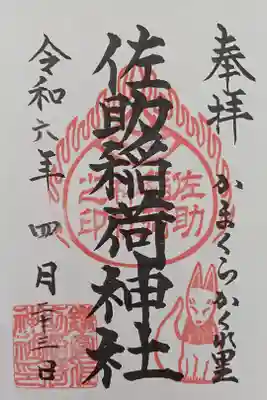 奉拝
かまくらかくれ里
佐助稲荷神社
佐助稲荷
之印
令和六年 四月二十三日